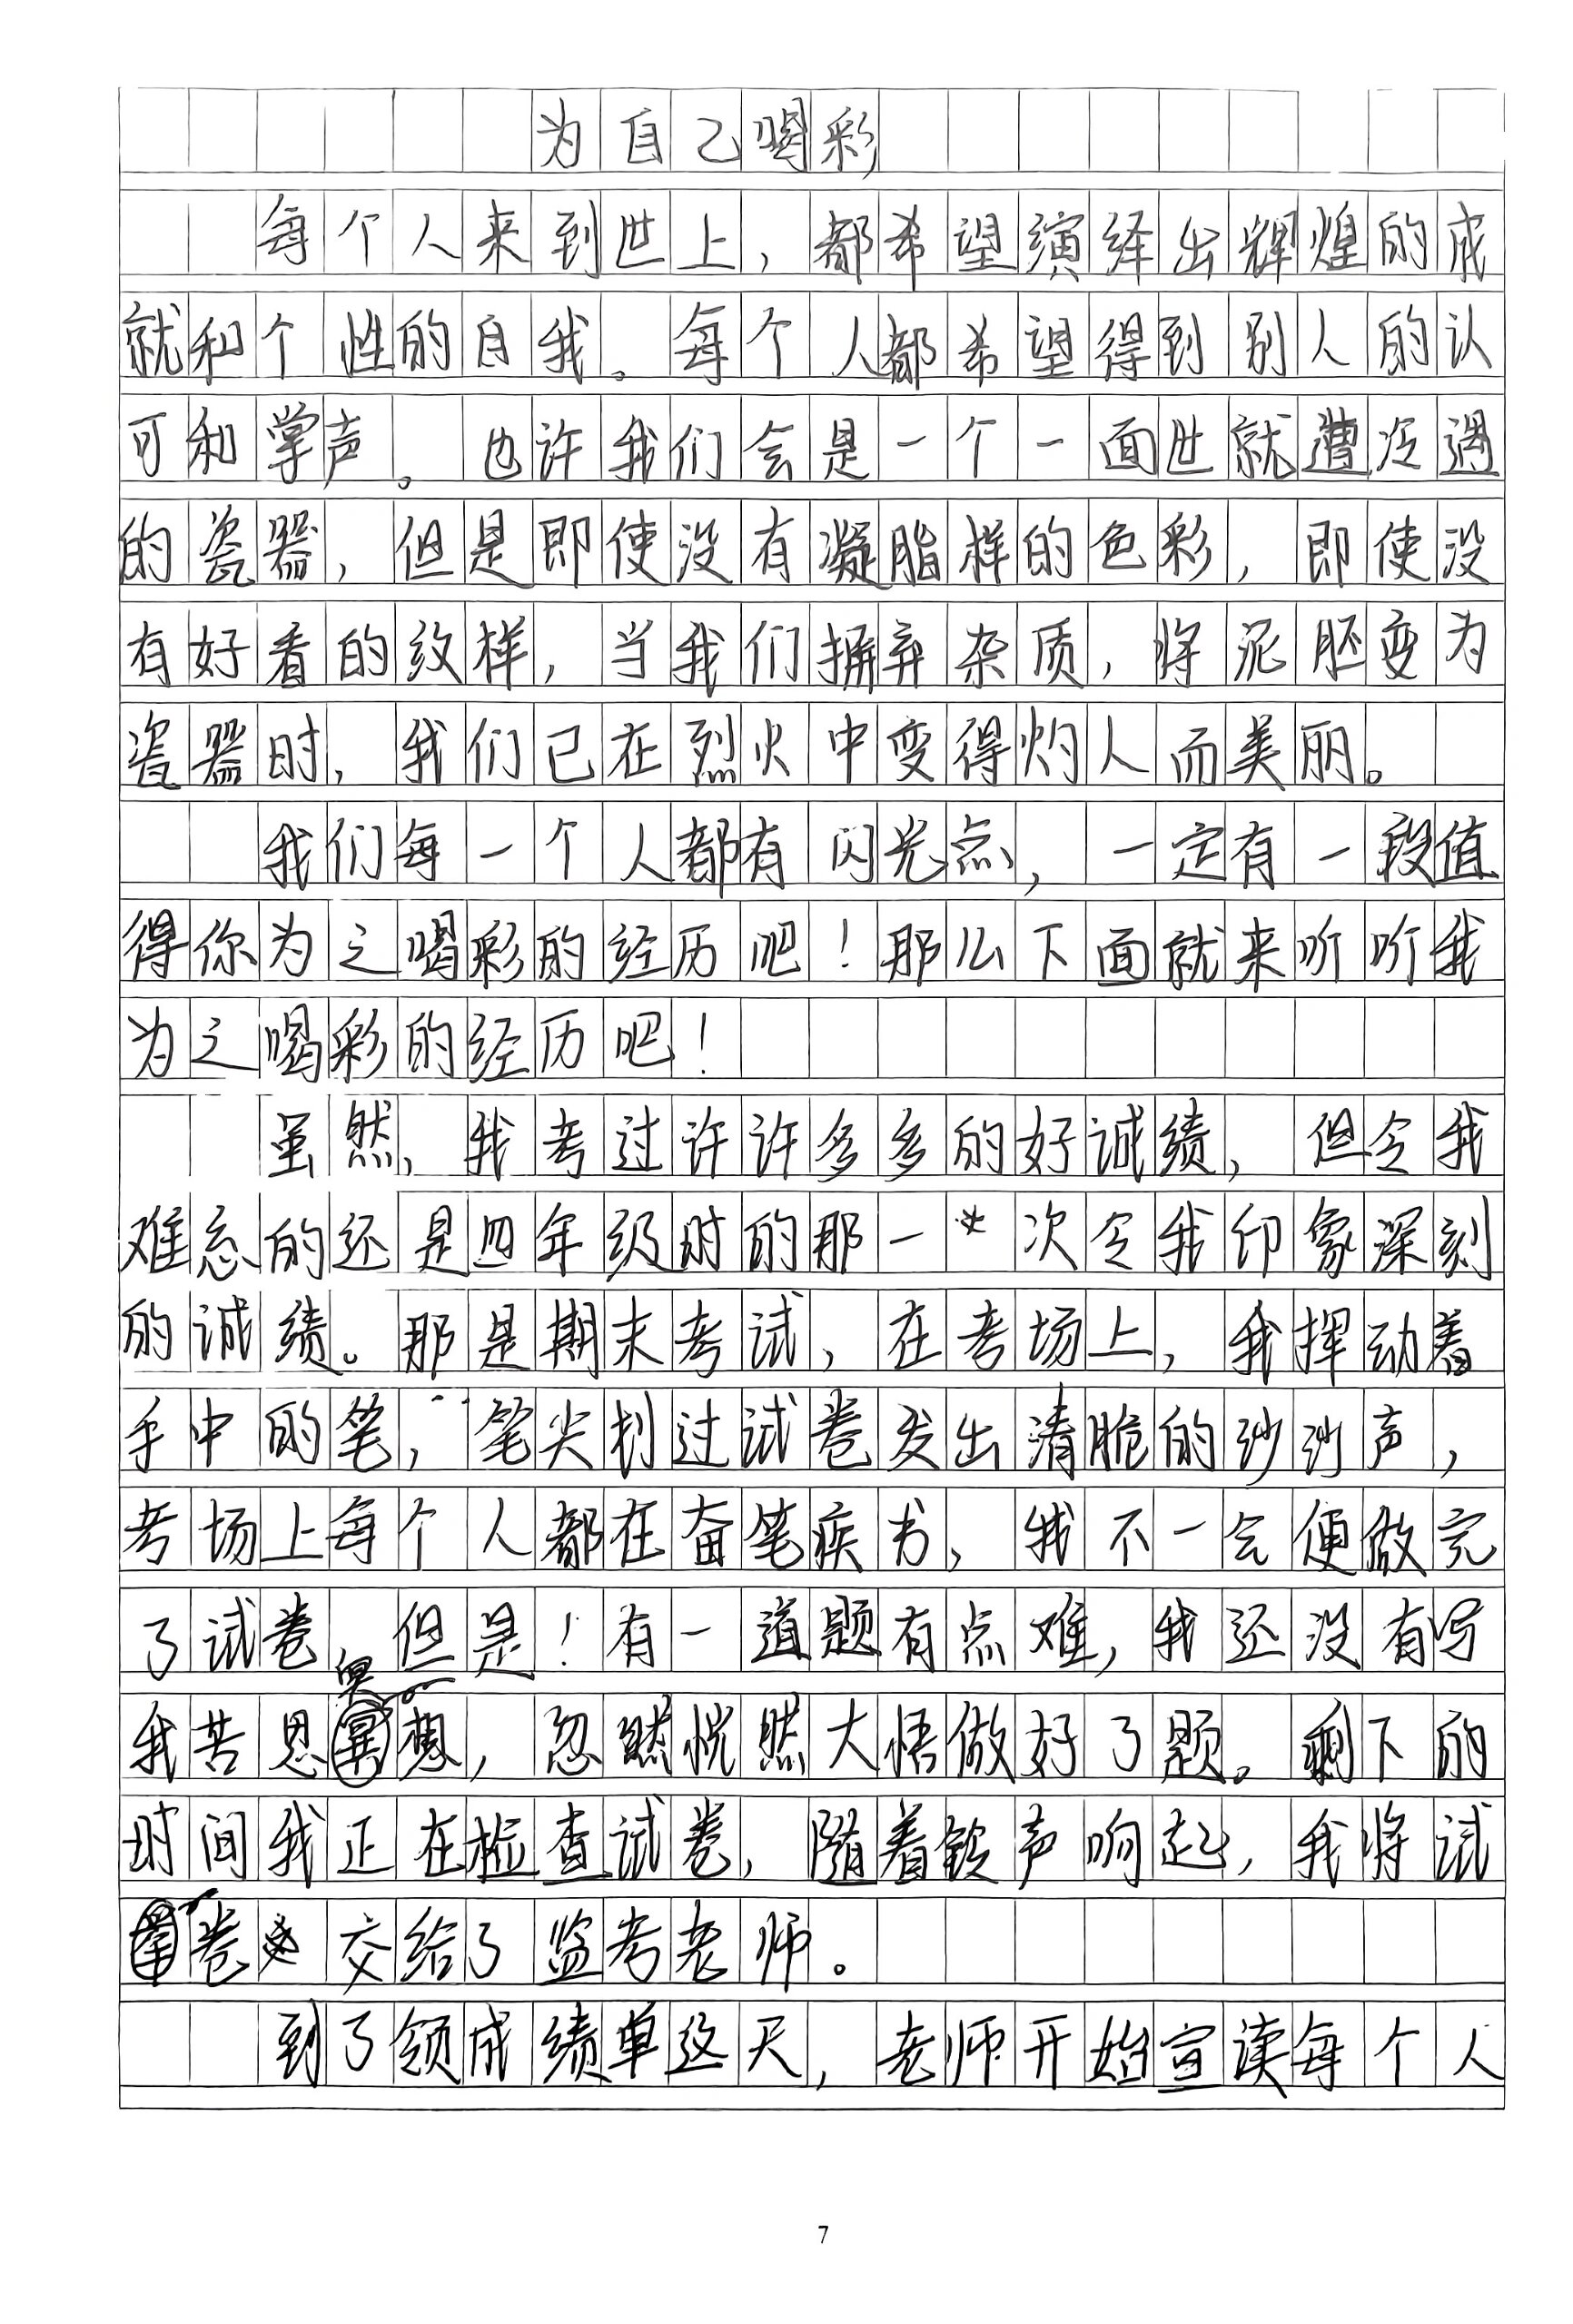 为自己喝彩
每个人来到世上，都希望演绎出辉煌的成
就和个性的自我。每个人都希望得到别人的认
可和掌声。也许我们会是一个一面世就遭冷遇
的瓷器，但是即使没有凝脂样的色彩，即使没
有好看的纹样，当我们摒弃杂质，将泥胚变为
瓷器时，我们已在烈火中变得灼人而美丽。
我们每一个人都有闪光点，一定有一段值
得你为之喝彩的经历吧！那么下面就来听听我
为之喝彩的经历吧！
虽然，我考过许许多多的好诚绩，但令我
难忘的还是四年级时的那一次令我印象深刻
的诚绩。那是期末考试，在考场上，我挥动着
手中的笔，笔尖划过试卷发出清脆的沙沙声，
考场上每个人都在奋笔疾书，我不一会便做完
了试卷，但是！有一道题有点难，我还没有写
我苦思冥想，忽然恍然大悟做好了题。剩下的
时间我正在检查试卷，随着铃声响起，我将试
卷交给了监考老师。
到了领成绩单这天，老师开始宣读每个人
7